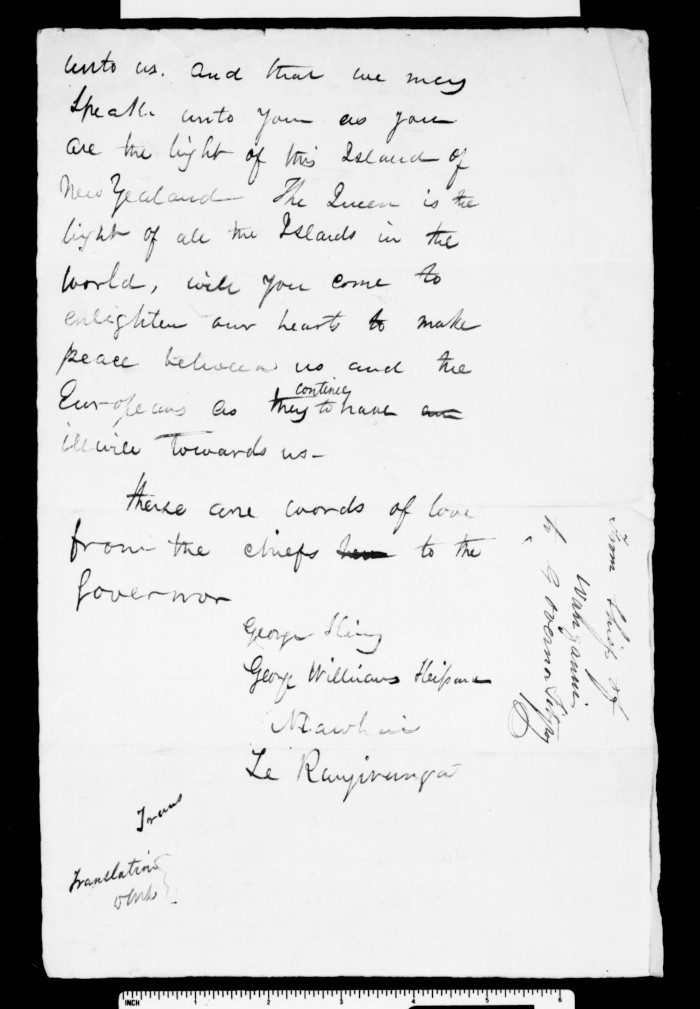 unto us. and that we may
speak unto you as you
are the light of this Island of
New Zealand The Queen is the
light of all the Islands in the
world, will you come to
enlighten our hearts to make
peace between us and the
continue
Europeans as they to have an
illwill towards us-
these are words of love
from the chiefs to the
Governor
George King
George Williams
Te Rangirunga
Trans
Translation
From Chiefs of
Wanganui
to Governor Fitzroy
INCH 1 2 3 4 5 6